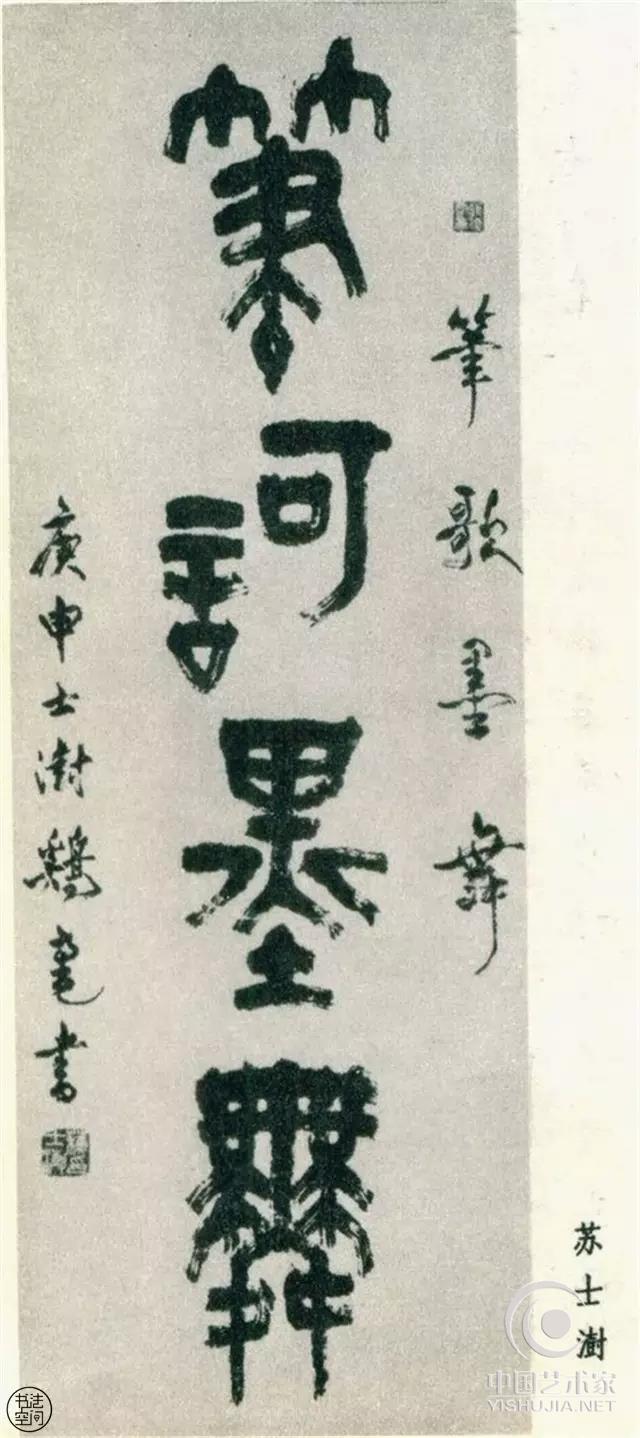 筆歌墨舞
筆訶墨舞
庚申士澍鷄毫書
苏士澍
中国艺术家
YISHUJIA.NET
书法
空间